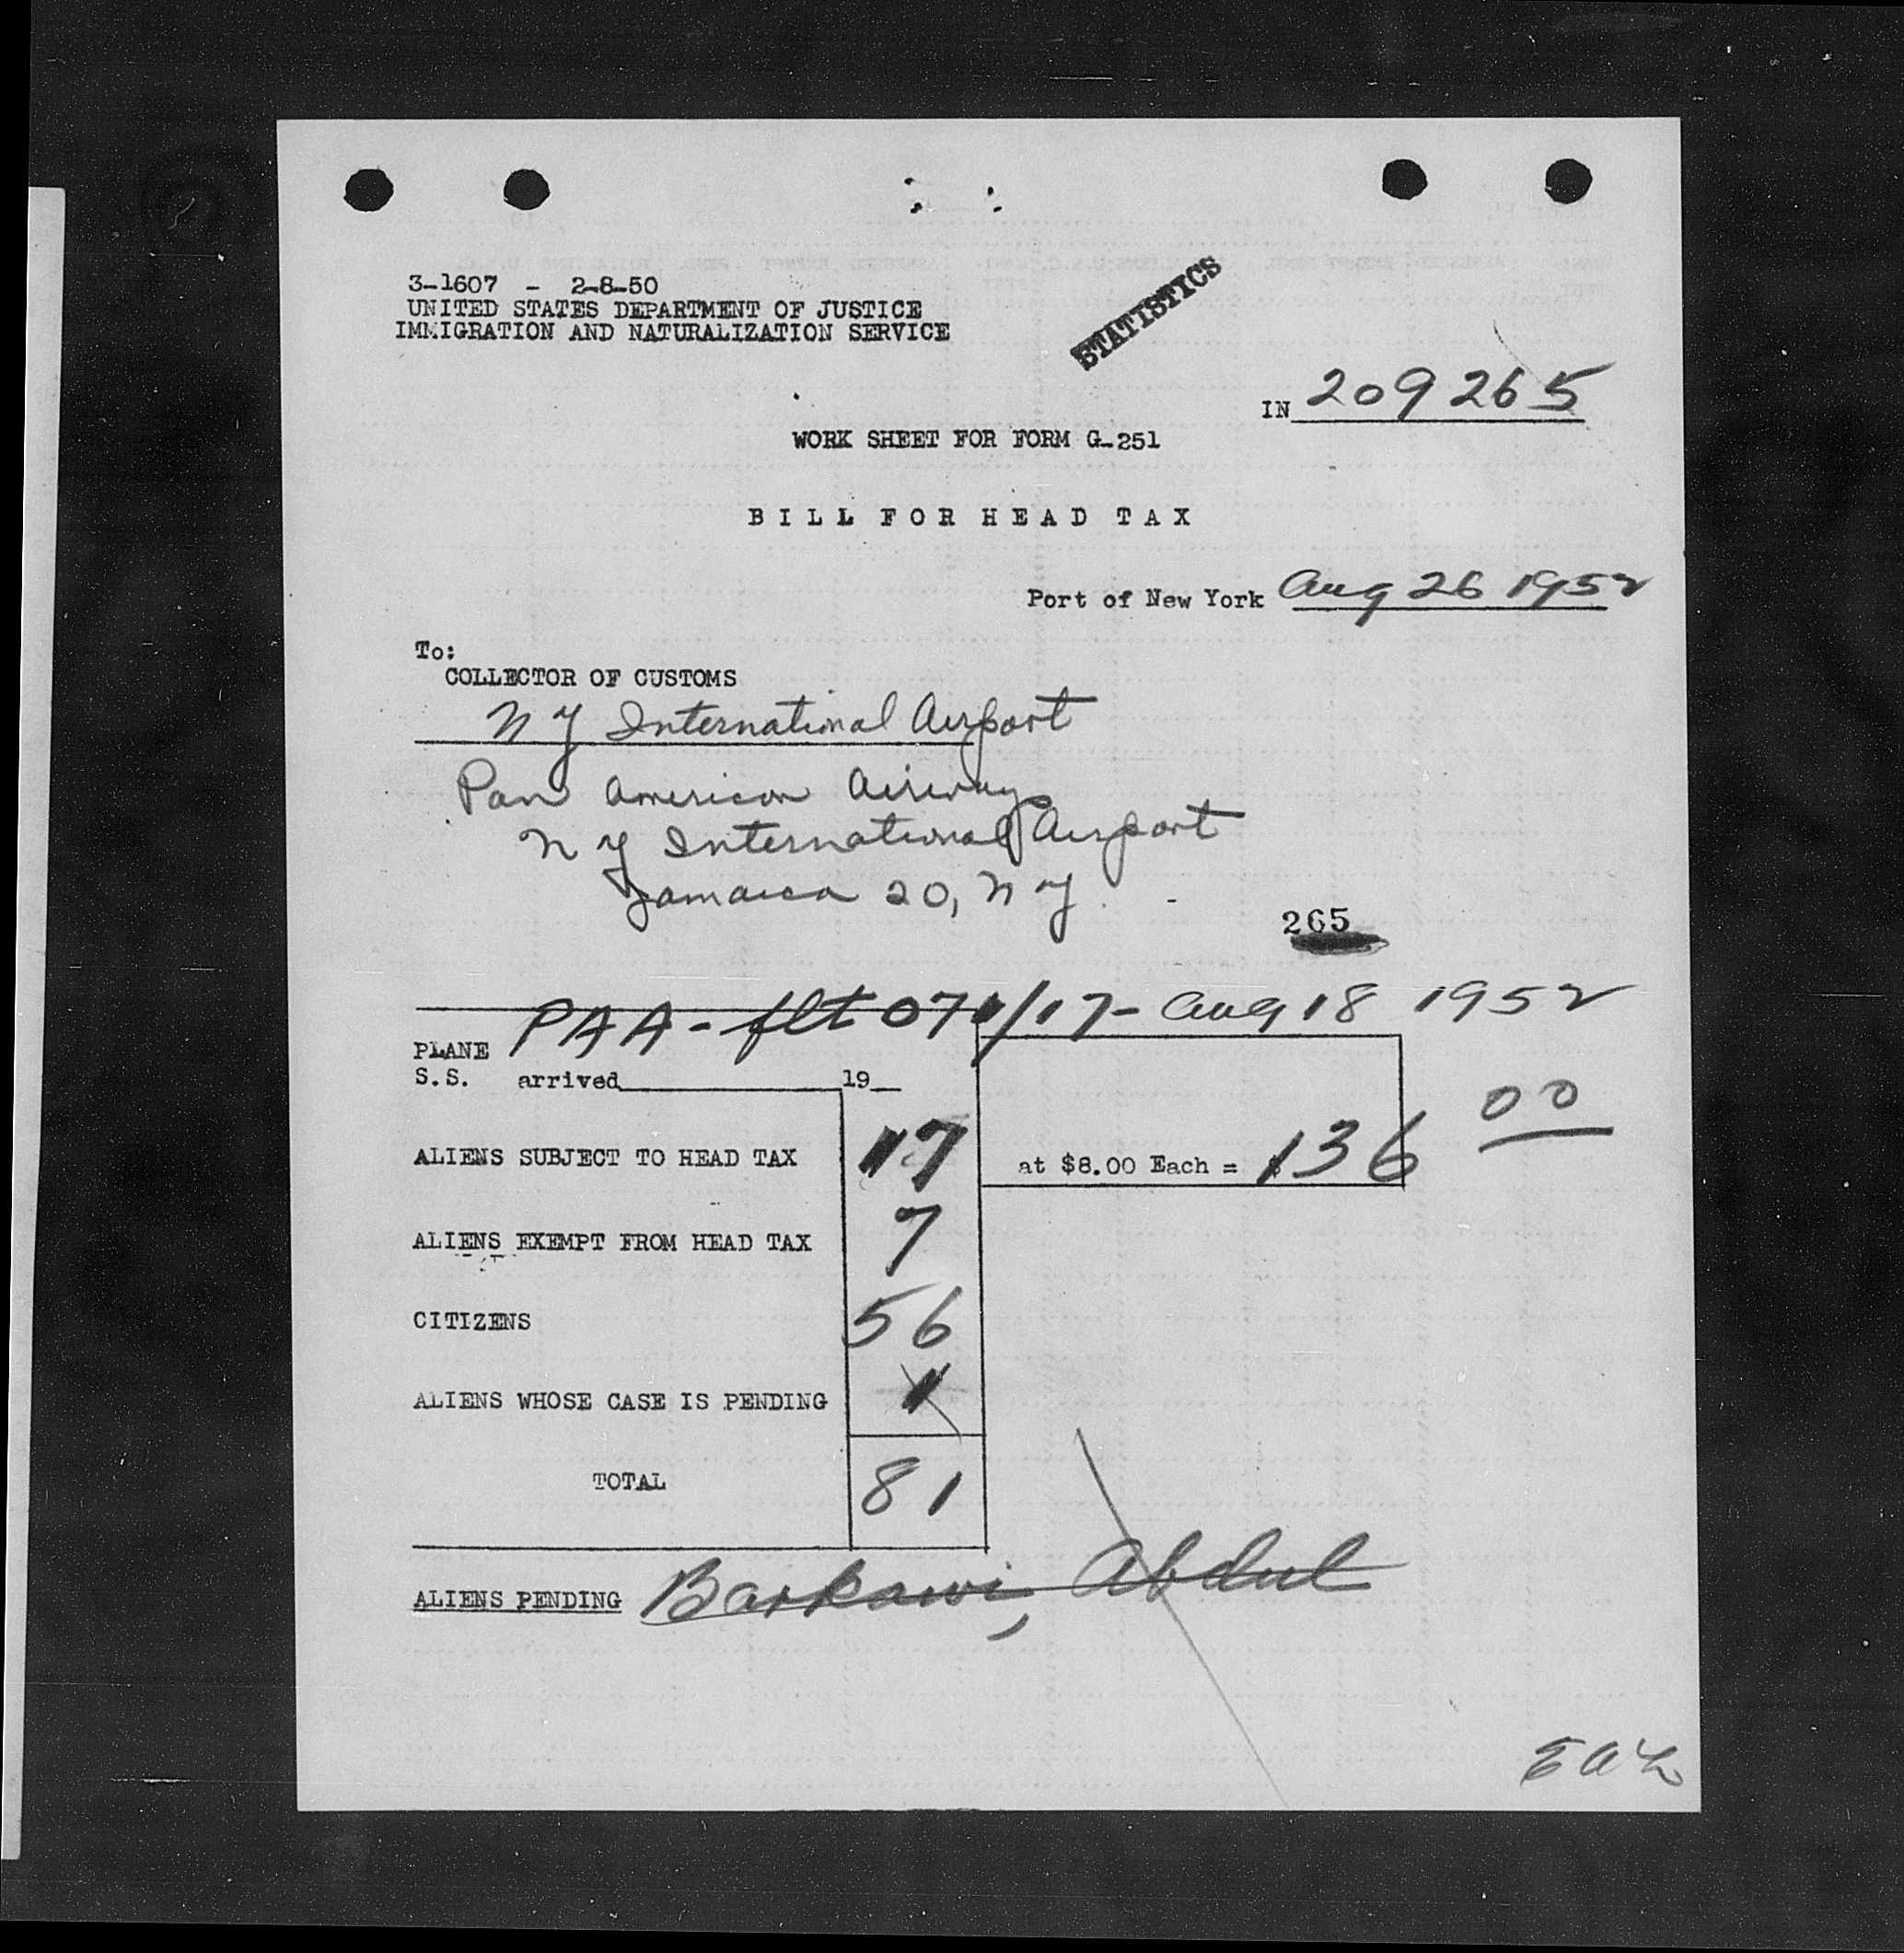 3-1607 - 2-8-50
UNITED STATES DEPARTMENT OF JUSTICE
IMMIGRATION AND NATURALIZATION SERVICE
STATISTICS
IN 209265
WORK SHEET FOR FORM G-251
BILL FOR HEAD TAX
Port of New York Aug 26 1952
To:
COLLECTOR OF CUSTOMS
N Y International Airport
Pan American Airways
N Y International Airport
Jamaica 20, N Y
265
PAA - flt 071/17 - Aug 18 1952
PLANE
S.S. arrived 19
ALIENS SUBJECT TO HEAD TAX 17 at $8.00 Each = $136 00
ALIENS EXEMPT FROM HEAD TAX 7
CITIZENS 56
ALIENS WHOSE CASE IS PENDING 1
TOTAL 81
ALIENS PENDING Barkawi, Abdul